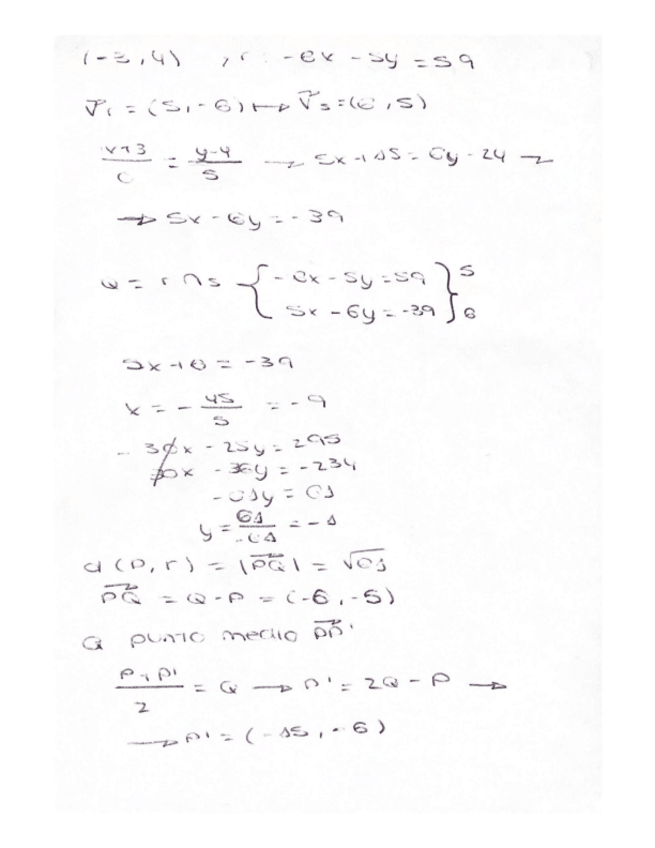 (-3,4) , r: -6x - 5y = 59
V⃗r = (5,-6) ↦ V⃗s = (6,5)
x+3/6 = y-4/5 → 5x+15 = 6y-24 →
→ 5x - 6y = -39
Q = r ∩ s { -6x - 5y = 59 } 5
5x - 6y = -39 } 6
5x+6 = -39
x = - 45/5 = -9
- 30x - 25y = 295
30x - 36y = -234
-61y = 61
y = 61/-61 = -1
d(P,r) = |P⃗Q| = √61
P⃗Q = Q-P = (-6,-5)
Q punto medio P⃗P'
P+P'/2 = Q → P' = 2Q - P →
→ P' = (-15,-6)